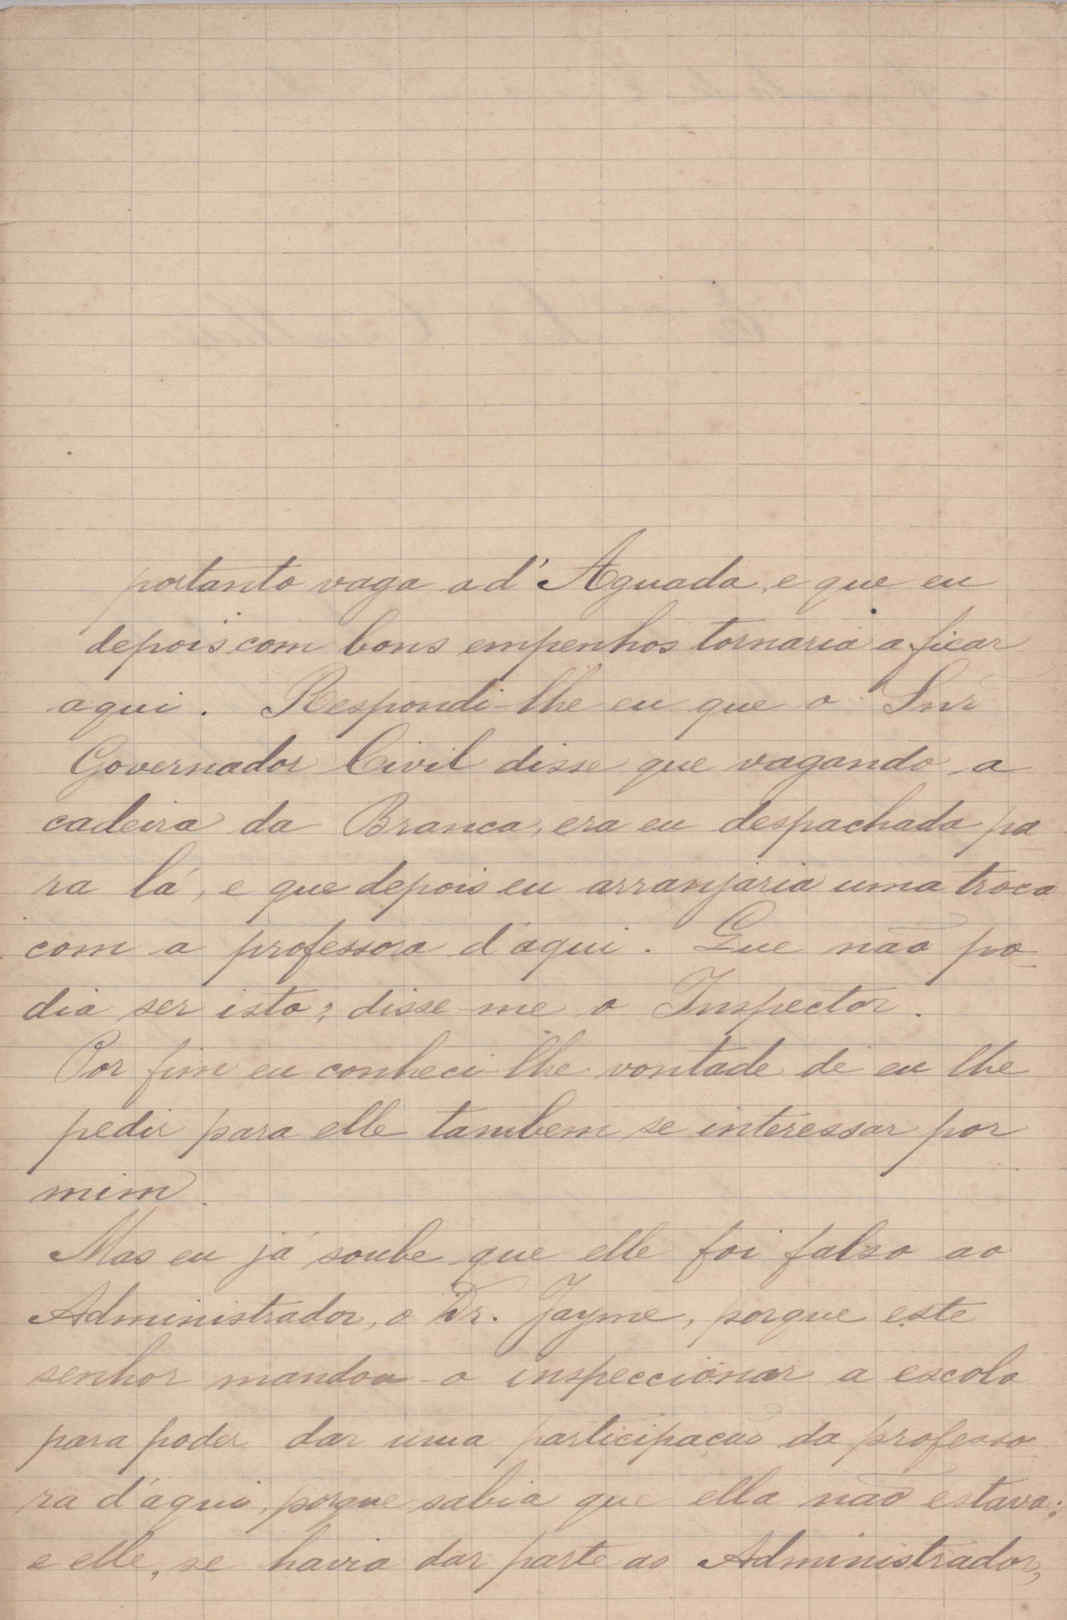 portanto vaga a d'Aguada, e que eu
depois com bons empenhos tornaria a ficar
aqui. Respondi-lhe eu que o Snr
Governador Civil disse que vagando a
cadeira da Branca, era eu despachada pa
ra lá, e que depois eu arranjaria uma troca
com a professora d'aqui. Que não po-
dia ser isto; disse-me o Inspector.
Por fim eu conheci-lhe vontade de eu lhe
pedir para elle tambem se interessar por
mim.
Mas eu já soube que elle foi falso ao
Administrador, o Dr. Jayme, porque este
senhor mandou-o inspeccionar a escola
para poder dar uma participação da professo
ra d'aqui, porque sabia que ella não estava;
e elle, se havia dar parte ao Administrador,